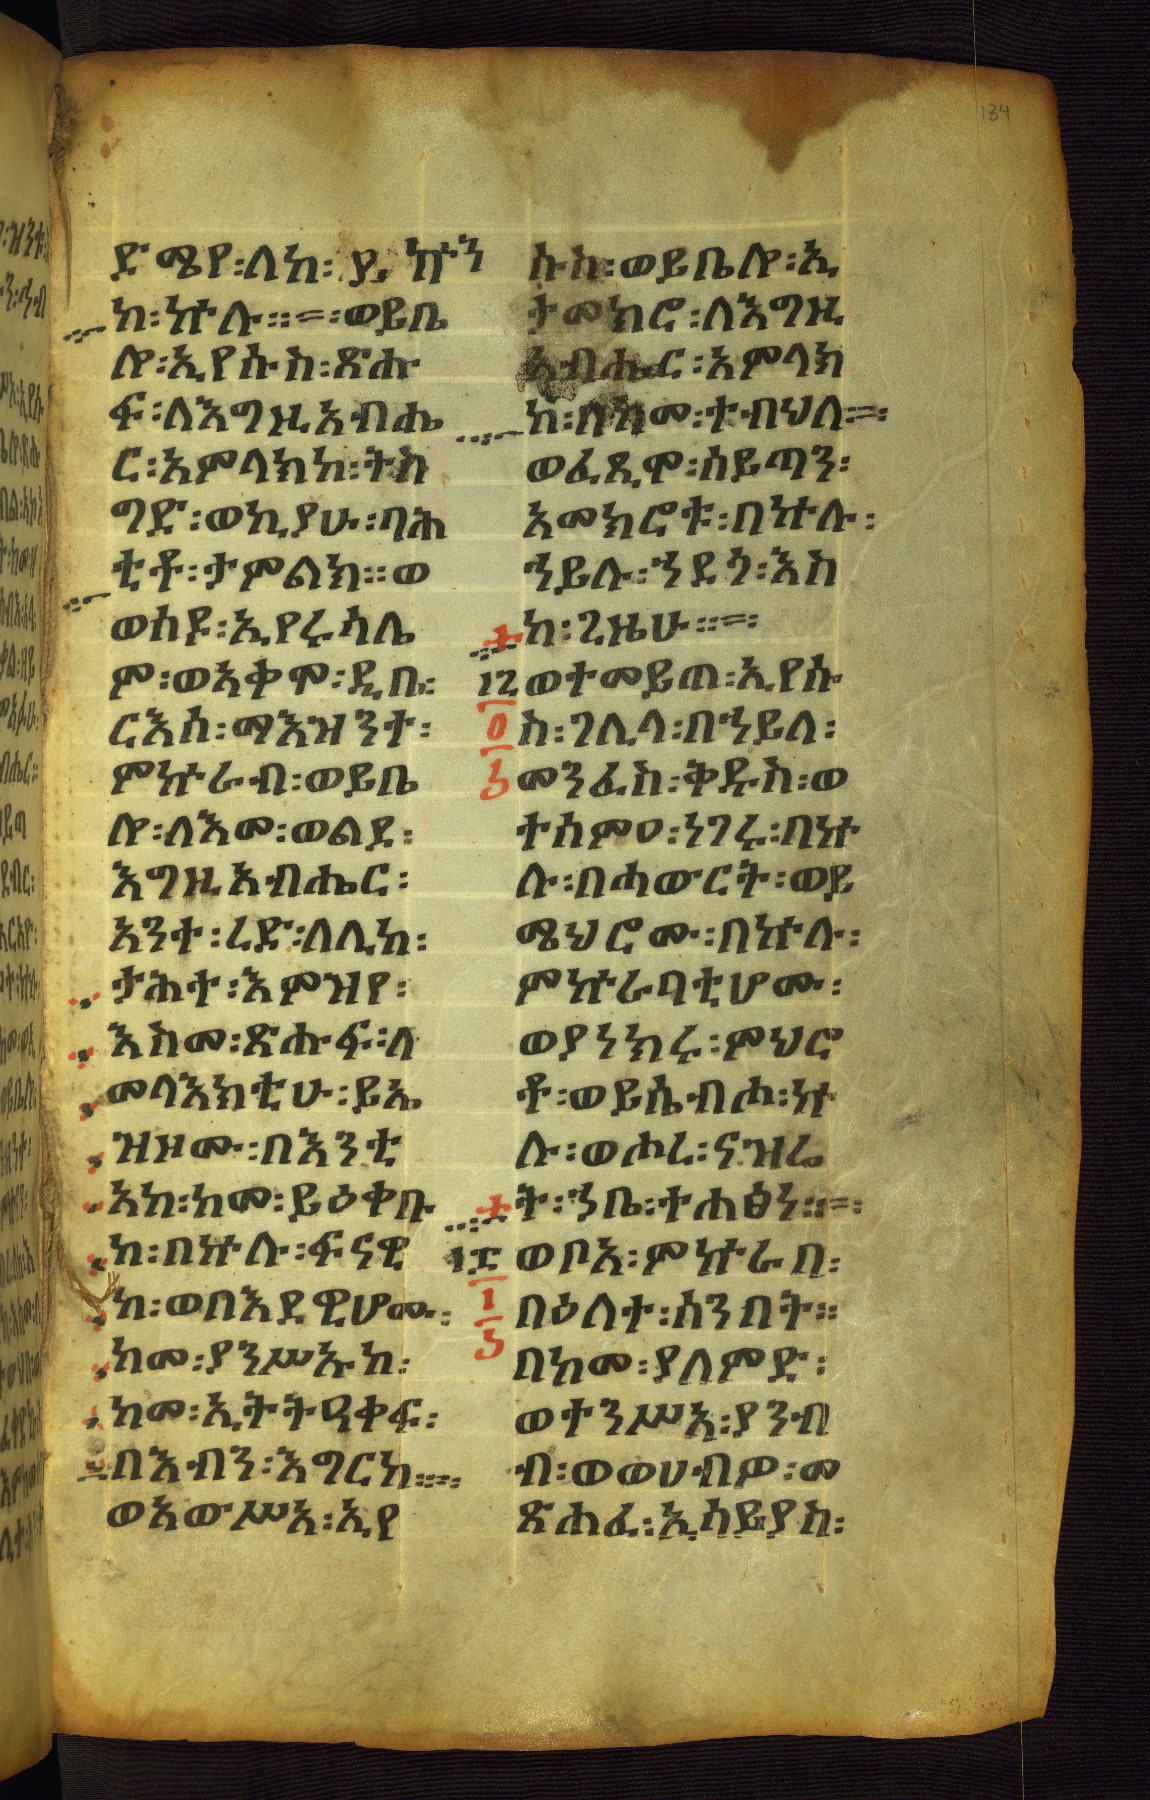 134
ድሜየ፡ለከ፡ ያ, ኵን
ከ፡ኵሉ፡፡=፡ወይቤ
ሎ፡ኢየሱስ፡ጽሑ
ፍ፡ለእግዚአብሔ
ር፡አምላክከ፡ትስ
ግድ፡ወኪያሁ፡ባሕ
ቲቶ፡ታምልክ፡፡ወ
ወሰዶ፡ኢየሩሳሌ
ም፡ወአቀሞ፡ዲበ፡
ርእሰ፡ማእዝንተ፡
ምኵራብ፡ወይቤ
ሎ፡ለእመ፡ወልደ፡
እግዚአብሔር፡
አንተ፡ረድ፡ለሊከ፡
ታሕተ፡እምዝየ፡
እስመ፡ጽሑፍ፡ለ
መላእክቲሁ፡ይኤ
ዝዞሙ፡በእንቲ
አከ፡ከመ፡ይዕቀቡ
ከ፡በኵሉ፡ፍናዊ
ከ፡ወበእደዊሆሙ፡
ከመ፡ያንሥኡከ፡
ከመ፡ኢትትዓቀፍ፡
በእብን፡እግርከ፡፡=፡
ወአውሥአ፡ኢየ
ሱስ፡ወይቤሎ፡ኢ
ታመክሮ፡ለእግዚ
አብሔር፡አምላክ
ከ፡ስኸመ፡ተብህለ፡=፡
ወፈጺሞ፡ሰይጣን፡
አመክሮቱ፡በኵሉ፡
ኀይሉ፡ኀደጎ፡እስ
ከ፡ጊዜሁ፡፡=፡
ወተመይጠ፡ኢየሱ
ስ፡ገሊላ፡በኀይለ፡
መንፈስ፡ቅዱስ፡ወ
ተሰምዐ፡ነገሩ፡በኵ
ሉ፡በሓውርት፡ወይ
ሜህሮሙ፡በኵሉ፡
ምኵራባቲሆሙ፡
ወያነክሩ፡ምህሮ
ቶ፡ወይሴብሖ፡ኵ
ሉ፡ወሖረ፡ናዝሬ
ት፡ኀቤ፡ተሐፅነ፡፡=፡
ወቦአ፡ምኵራበ፡
በዕለተ፡ሰንበት፡፡
በከመ፡ያለምድ፡
ወተንሥአ፡ያንብ
ብ፡ወወሀብዎ፡መ
ጽሐፈ፡ኢሳይያስ፡